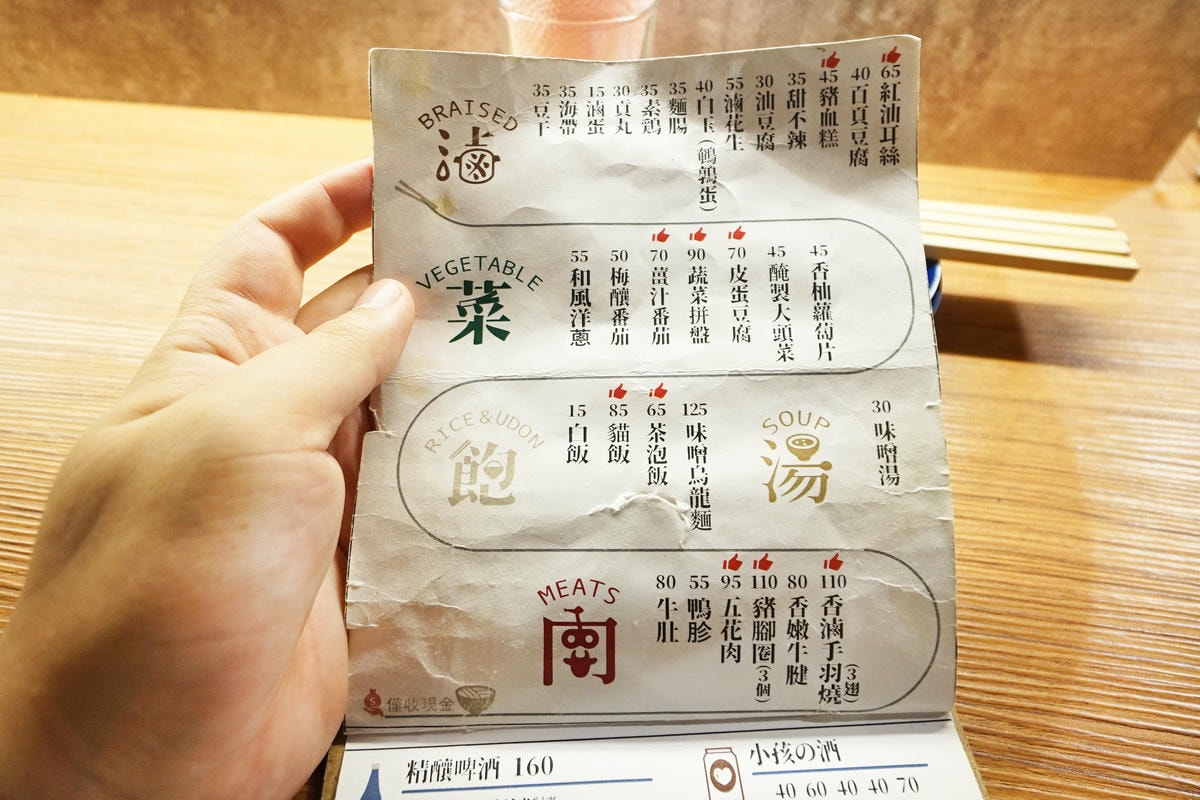 BRAISED
滷
65 紅油耳絲
40 百頁豆腐
45 豬血糕
35 甜不辣
30 油豆腐
55 滷花生
40 白玉(鵪鶉蛋)
35 麵腸
35 素鷄
30 貢丸
15 滷蛋
35 海帶
35 豆干
VEGETABLE
菜
45 香柚蘿蔔片
45 醃製大頭菜
70 皮蛋豆腐
90 蔬菜拼盤
70 薑汁番茄
50 梅釀番茄
55 和風洋蔥
RICE & UDON
飽
125 味噌烏龍麵
65 茶泡飯
85 貓飯
15 白飯
SOUP
湯
30 味噌湯
MEATS
肉
110 香滷手羽燒(3翅)
80 香嫩牛腱
110 豬腳圈(3個)
95 五花肉
55 鴨胗
80 牛肚
$ 僅收現金
精釀啤酒 160
小孩の酒
40 60 40 40 70